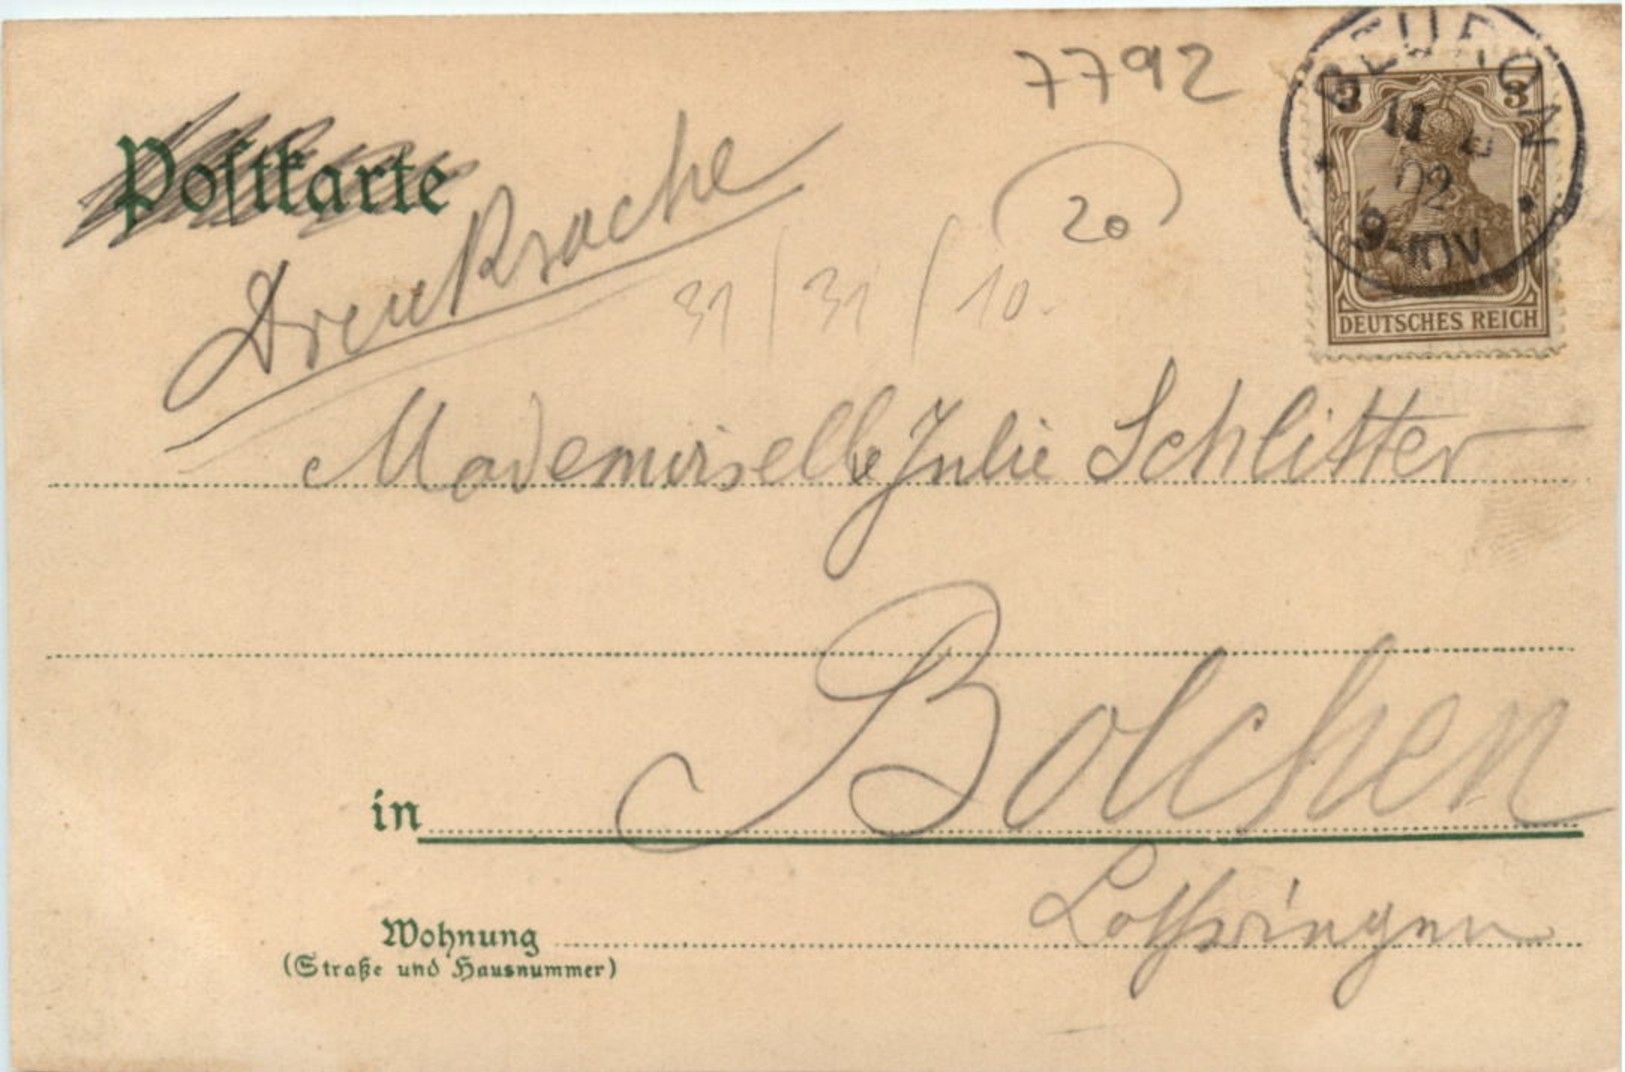 7792
BEURON
3 3
11
02
9-10V
DEUTSCHES REICH
Postkarte
Drucksache
20
31/31/10-
Mademoiselle Julie Schlitter
in Bolchen
Lothringen
Wohnung
(Straße und Hausnummer)